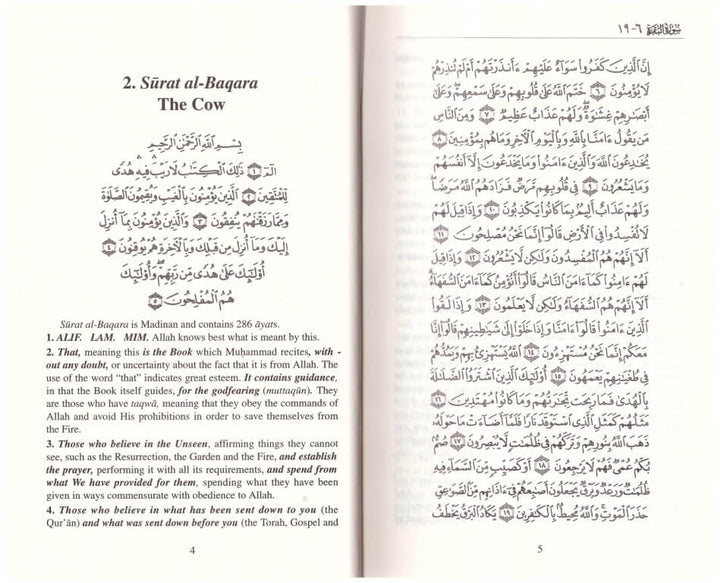 2. Sūrat al-Baqara
The Cow
بِسْمِ اللَّهِ الرَّحْمَٰنِ الرَّحِيمِ
الٓمٓ ١ ذَٰلِكَ الْكِتَٰبُ لَا رَيْبَ فِيهِ هُدًى
لِّلْمُتَّقِينَ ٢ الَّذِينَ يُؤْمِنُونَ بِالْغَيْبِ وَيُقِيمُونَ الصَّلَوٰةَ
وَمِمَّا رَزَقْنَٰهُمْ يُنفِقُونَ ٣ وَالَّذِينَ يُؤْمِنُونَ بِمَآ أُنزِلَ
إِلَيْكَ وَمَآ أُنزِلَ مِن قَبْلِكَ وَبِالْآخِرَةِ هُمْ يُوقِنُونَ ٤
أُو۟لَٰٓئِكَ عَلَىٰ هُدًى مِّن رَّبِّهِمْ وَأُو۟لَٰٓئِكَ
هُمُ الْمُفْلِحُونَ ٥
Sūrat al-Baqara is Madinan and contains 286 āyats.
1. ALIF. LAM. MIM. Allah knows best what is meant by this.
2. That, meaning this is the Book which Muḥammad recites, with -
out any doubt, or uncertainty about the fact that it is from Allah. The
use of the word “that” indicates great esteem. It contains guidance,
in that the Book itself guides, for the godfearing (muttaqūn). They
are those who have taqwā, meaning that they obey the commands of
Allah and avoid His prohibitions in order to save themselves from
the Fire.
3. Those who believe in the Unseen, affirming things they cannot
see, such as the Resurrection, the Garden and the Fire, and establish
the prayer, performing it with all its requirements, and spend from
what We have provided for them, spending what they have been
given in ways commensurate with obedience to Allah.
4. Those who believe in what has been sent down to you (the
Qur’ān) and what was sent down before you (the Torah, Gospel and
4
سورة البقرة ٦-١٩
إِنَّ الَّذِينَ كَفَرُوا سَوَآءٌ عَلَيْهِمْ ءَأَنذَرْتَهُمْ أَمْ لَمْ تُنذِرْهُمْ
لَا يُؤْمِنُونَ ٦ خَتَمَ اللَّهُ عَلَىٰ قُلُوبِهِمْ وَعَلَىٰ سَمْعِهِمْ وَعَلَىٰٓ
أَبْصَٰرِهِمْ غِشَٰوَةٌ وَلَهُمْ عَذَابٌ عَظِيمٌ ٧ وَمِنَ النَّاسِ
مَن يَقُولُ ءَامَنَّا بِاللَّهِ وَبِالْيَوْمِ الْآخِرِ وَمَا هُم بِمُؤْمِنِينَ ٨
يُخَٰدِعُونَ اللَّهَ وَالَّذِينَ ءَامَنُوا وَمَا يَخْدَعُونَ إِلَّآ أَنفُسَهُمْ
وَمَا يَشْعُرُونَ ٩ فِى قُلُوبِهِم مَّرَضٌ فَزَادَهُمُ اللَّهُ مَرَضًا
وَلَهُمْ عَذَابٌ أَلِيمٌ بِمَا كَانُوا يَكْذِبُونَ ١٠ وَإِذَا قِيلَ لَهُمْ
لَا تُفْسِدُوا فِى الْأَرْضِ قَالُوٓا إِنَّمَا نَحْنُ مُصْلِحُونَ ١١
أَلَآ إِنَّهُمْ هُمُ الْمُفْسِدُونَ وَلَٰكِن لَّا يَشْعُرُونَ ١٢ وَإِذَا قِيلَ
لَهُمْ ءَامِنُوا كَمَآ ءَامَنَ النَّاسُ قَالُوٓا أَنُؤْمِنُ كَمَآ ءَامَنَ السُّفَهَآءُ
أَلَآ إِنَّهُمْ هُمُ السُّفَهَآءُ وَلَٰكِن لَّا يَعْلَمُونَ ١٣ وَإِذَا لَقُوا
الَّذِينَ ءَامَنُوا قَالُوٓا ءَامَنَّا وَإِذَا خَلَوْا إِلَىٰ شَيَٰطِينِهِمْ قَالُوٓا إِنَّا
مَعَكُمْ إِنَّمَا نَحْنُ مُسْتَهْزِءُونَ ١٤ اللَّهُ يَسْتَهْزِئُ بِهِمْ وَيَمُدُّهُمْ
فِى طُغْيَٰنِهِمْ يَعْمَهُونَ ١٥ أُو۟لَٰٓئِكَ الَّذِينَ اشْتَرَوُا الضَّلَٰلَةَ
بِالْهُدَىٰ فَمَا رَبِحَت تِّجَٰرَتُهُمْ وَمَا كَانُوا مُهْتَدِينَ ١٦
مَثَلُهُمْ كَمَثَلِ الَّذِى اسْتَوْقَدَ نَارًا فَلَمَّآ أَضَآءَتْ مَا حَوْلَهُۥ
ذَهَبَ اللَّهُ بِنُورِهِمْ وَتَرَكَهُمْ فِى ظُلُمَٰتٍ لَّا يُبْصِرُونَ ١٧ صُمٌّ
بُكْمٌ عُمْىٌ فَهُمْ لَا يَرْجِعُونَ ١٨ أَوْ كَصَيِّبٍ مِّنَ السَّمَآءِ فِيهِ
ظُلُمَٰتٌ وَرَعْدٌ وَبَرْقٌ يَجْعَلُونَ أَصَٰبِعَهُمْ فِىٓ ءَاذَانِهِم مِّنَ الصَّوَٰعِقِ
حَذَرَ الْمَوْتِ وَاللَّهُ مُحِيطٌ بِالْكَٰفِرِينَ ١٩ يَكَادُ الْبَرْقُ يَخْطَفُ
5